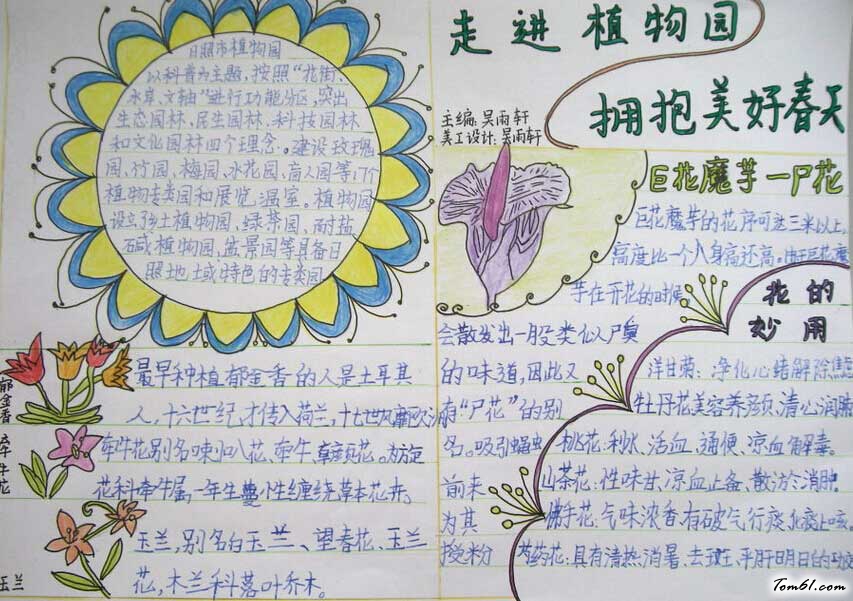 走进植物园
拥抱美好春天
主编:吴雨轩
美工设计:吴雨轩
日照市植物园
以科普为主题,按照“花街、
水岸、文轴”进行功能分区,突出
生态园林、民生园林、科技园林
和文化园林四个理念。建设玫瑰
园、竹园、梅园、水花园、盲人园等17个
植物专类园和展览温室。植物园
设立乡土植物园、绿茶园、耐盐
碱植物园、盆景园等具备日
照地域特色的专类园
郁金香
最早种植郁金香的人是土耳其
人,十六世纪才传入荷兰,十七世纪
牵牛花
牵牛花别名喇叭花、牵牛、朝颜花。为旋
花科牵牛属,一年生蔓小生缠绕草本花卉。
玉兰
玉兰,别名白玉兰、望春花、玉兰
花,木兰科落叶乔木。
巨花魔芋—尸花
巨花魔芋的花序可达三米以上,
高度比一个人身高还高。由于巨花魔
芋在开花的时候,
会散发出一股类似人尸臭
的味道,因此又
有“尸花”的别
名。吸引蝇虫
前来
为其
授粉
花的
妙用
洋甘菊、净化心绪解除焦虑
牡丹花美容养颜,清心润肺
桃花:利水、活血、通便、凉血解毒。
山茶花:性味甘、凉血止备、散淤消肿
佛手花:气味浓香有破气行痰化痰止咳。
芍药花:具有清热消暑、去斑、平肝明目的功效
Tom61.com